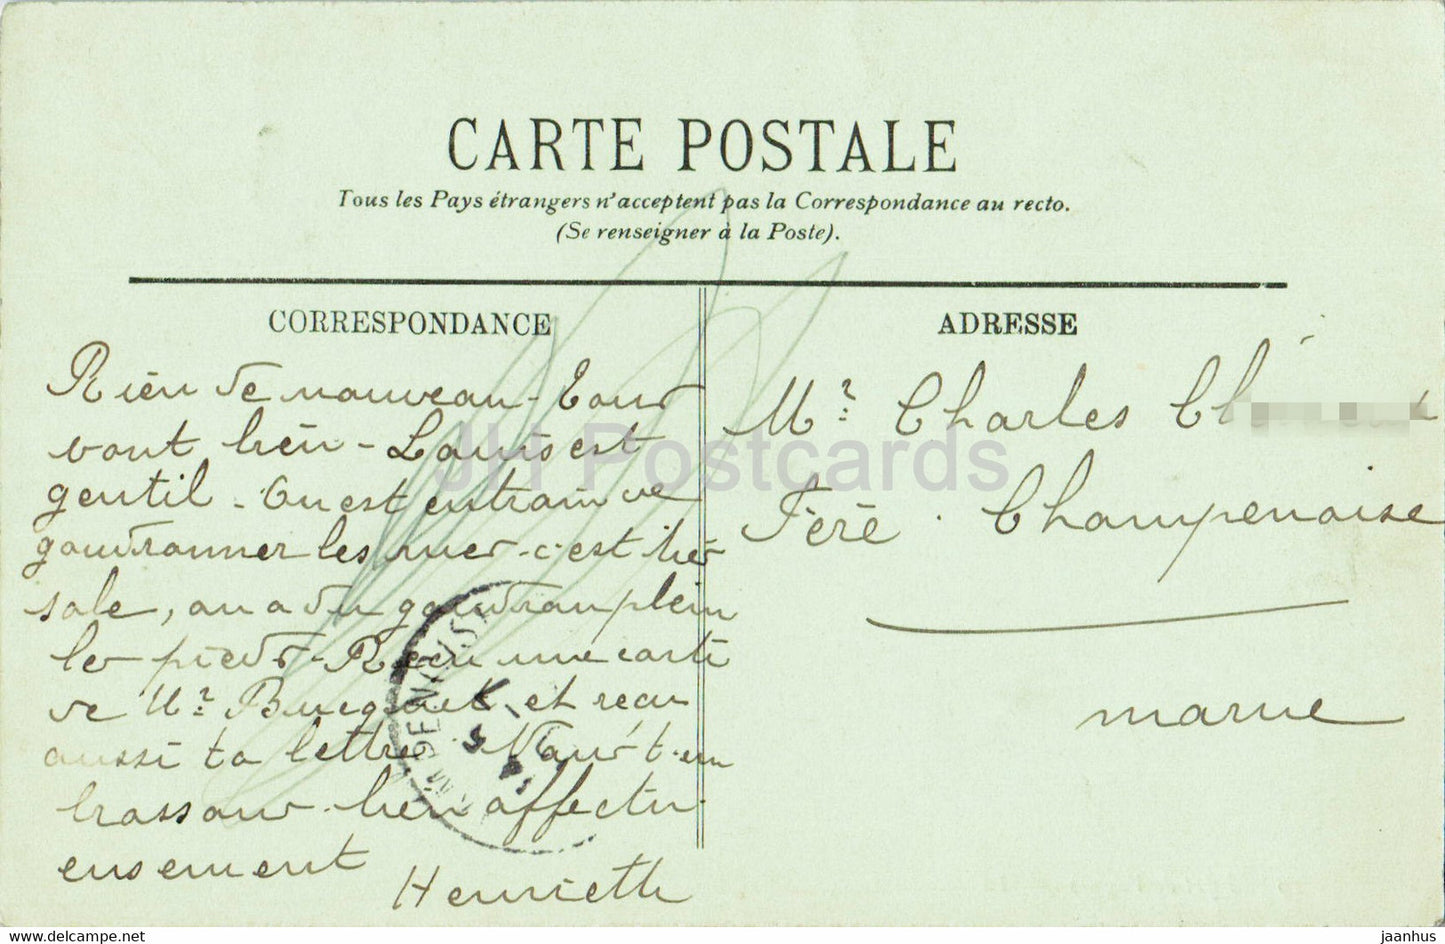 CARTE POSTALE
Tous les Pays étrangers n'acceptent pas la Correspondance au recto.
(Se renseigner à la Poste).
CORRESPONDANCE
Rien de nouveau - Tous
vont bien - Louis est
gentil - On est entrain de
goudronner les rues - c'est bien
sale, on a du goudron plein
les pieds - Reçu une carte
de Mr et reçu
aussi ta lettre. Nous t'em
brassons bien affectu
eusement
Henriette
ADRESSE
Mr Charles
Fère Champenoise
Marne
JH Postcards
jaanhus.com
jaanhus